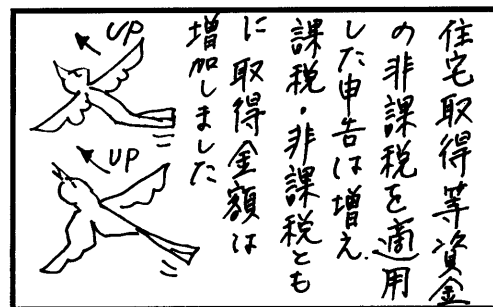 住宅取得等資金
の非課税を適用
した申告は増え、
課税・非課税とも
に取得金額は
増加しました
UP
UP